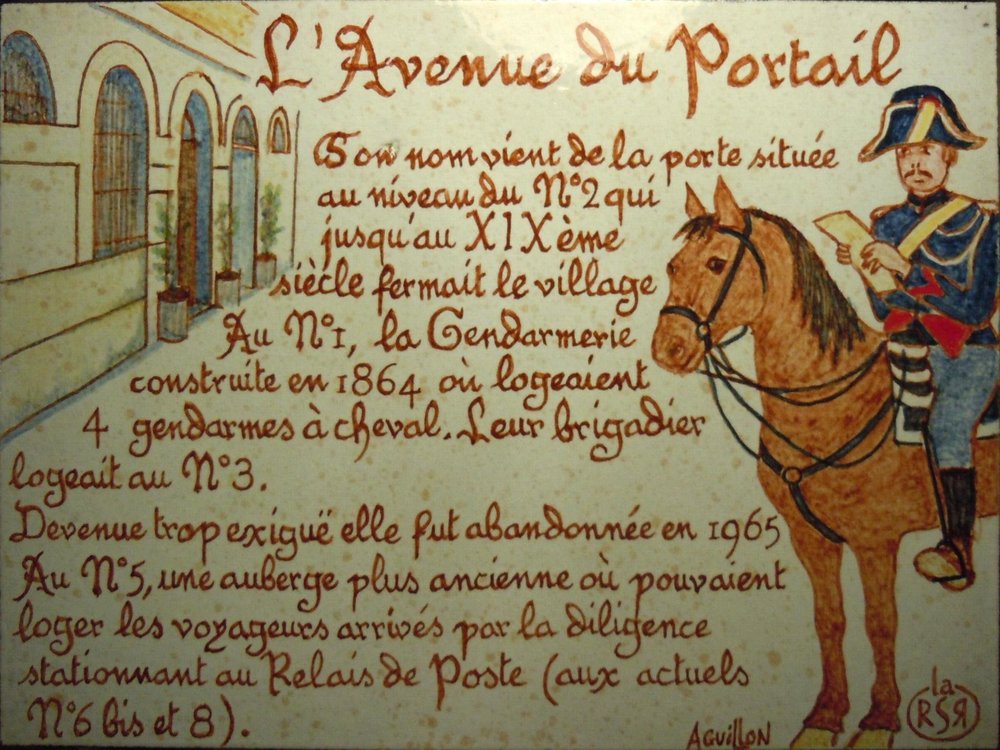 L'Avenue du Portail
Son nom vient de la porte située
au niveau du N°2 qui
jusqu'au XIXème
siècle fermait le village
Au N°1, la Gendarmerie
construite en 1864 où logeaient
4 gendarmes à cheval. Leur brigadier
logeait au N°3.
Devenue trop exiguë elle fut abandonnée en 1965
Au N°5, une auberge plus ancienne où pouvaient
loger les voyageurs arrivés par la diligence
stationnant au Relais de Poste (aux actuels
N°6 bis et 8).
AGUILLON
la
RSR